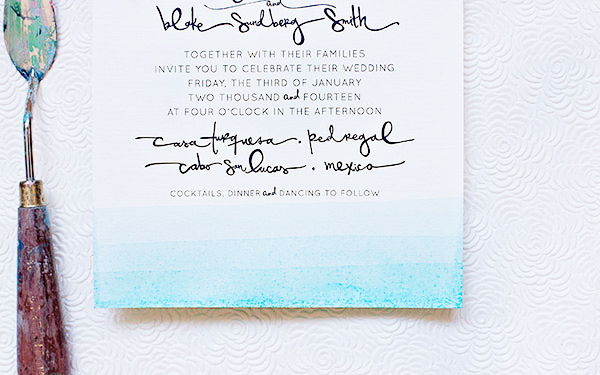 and
blake Sundberg Smith
TOGETHER WITH THEIR FAMILIES
INVITE YOU TO CELEBRATE THEIR WEDDING
FRIDAY, THE THIRD OF JANUARY
TWO THOUSAND and FOURTEEN
AT FOUR O'CLOCK IN THE AFTERNOON
casa turquesa . pedregal
cabo san lucas . mexico
COCKTAILS, DINNER and DANCING TO FOLLOW